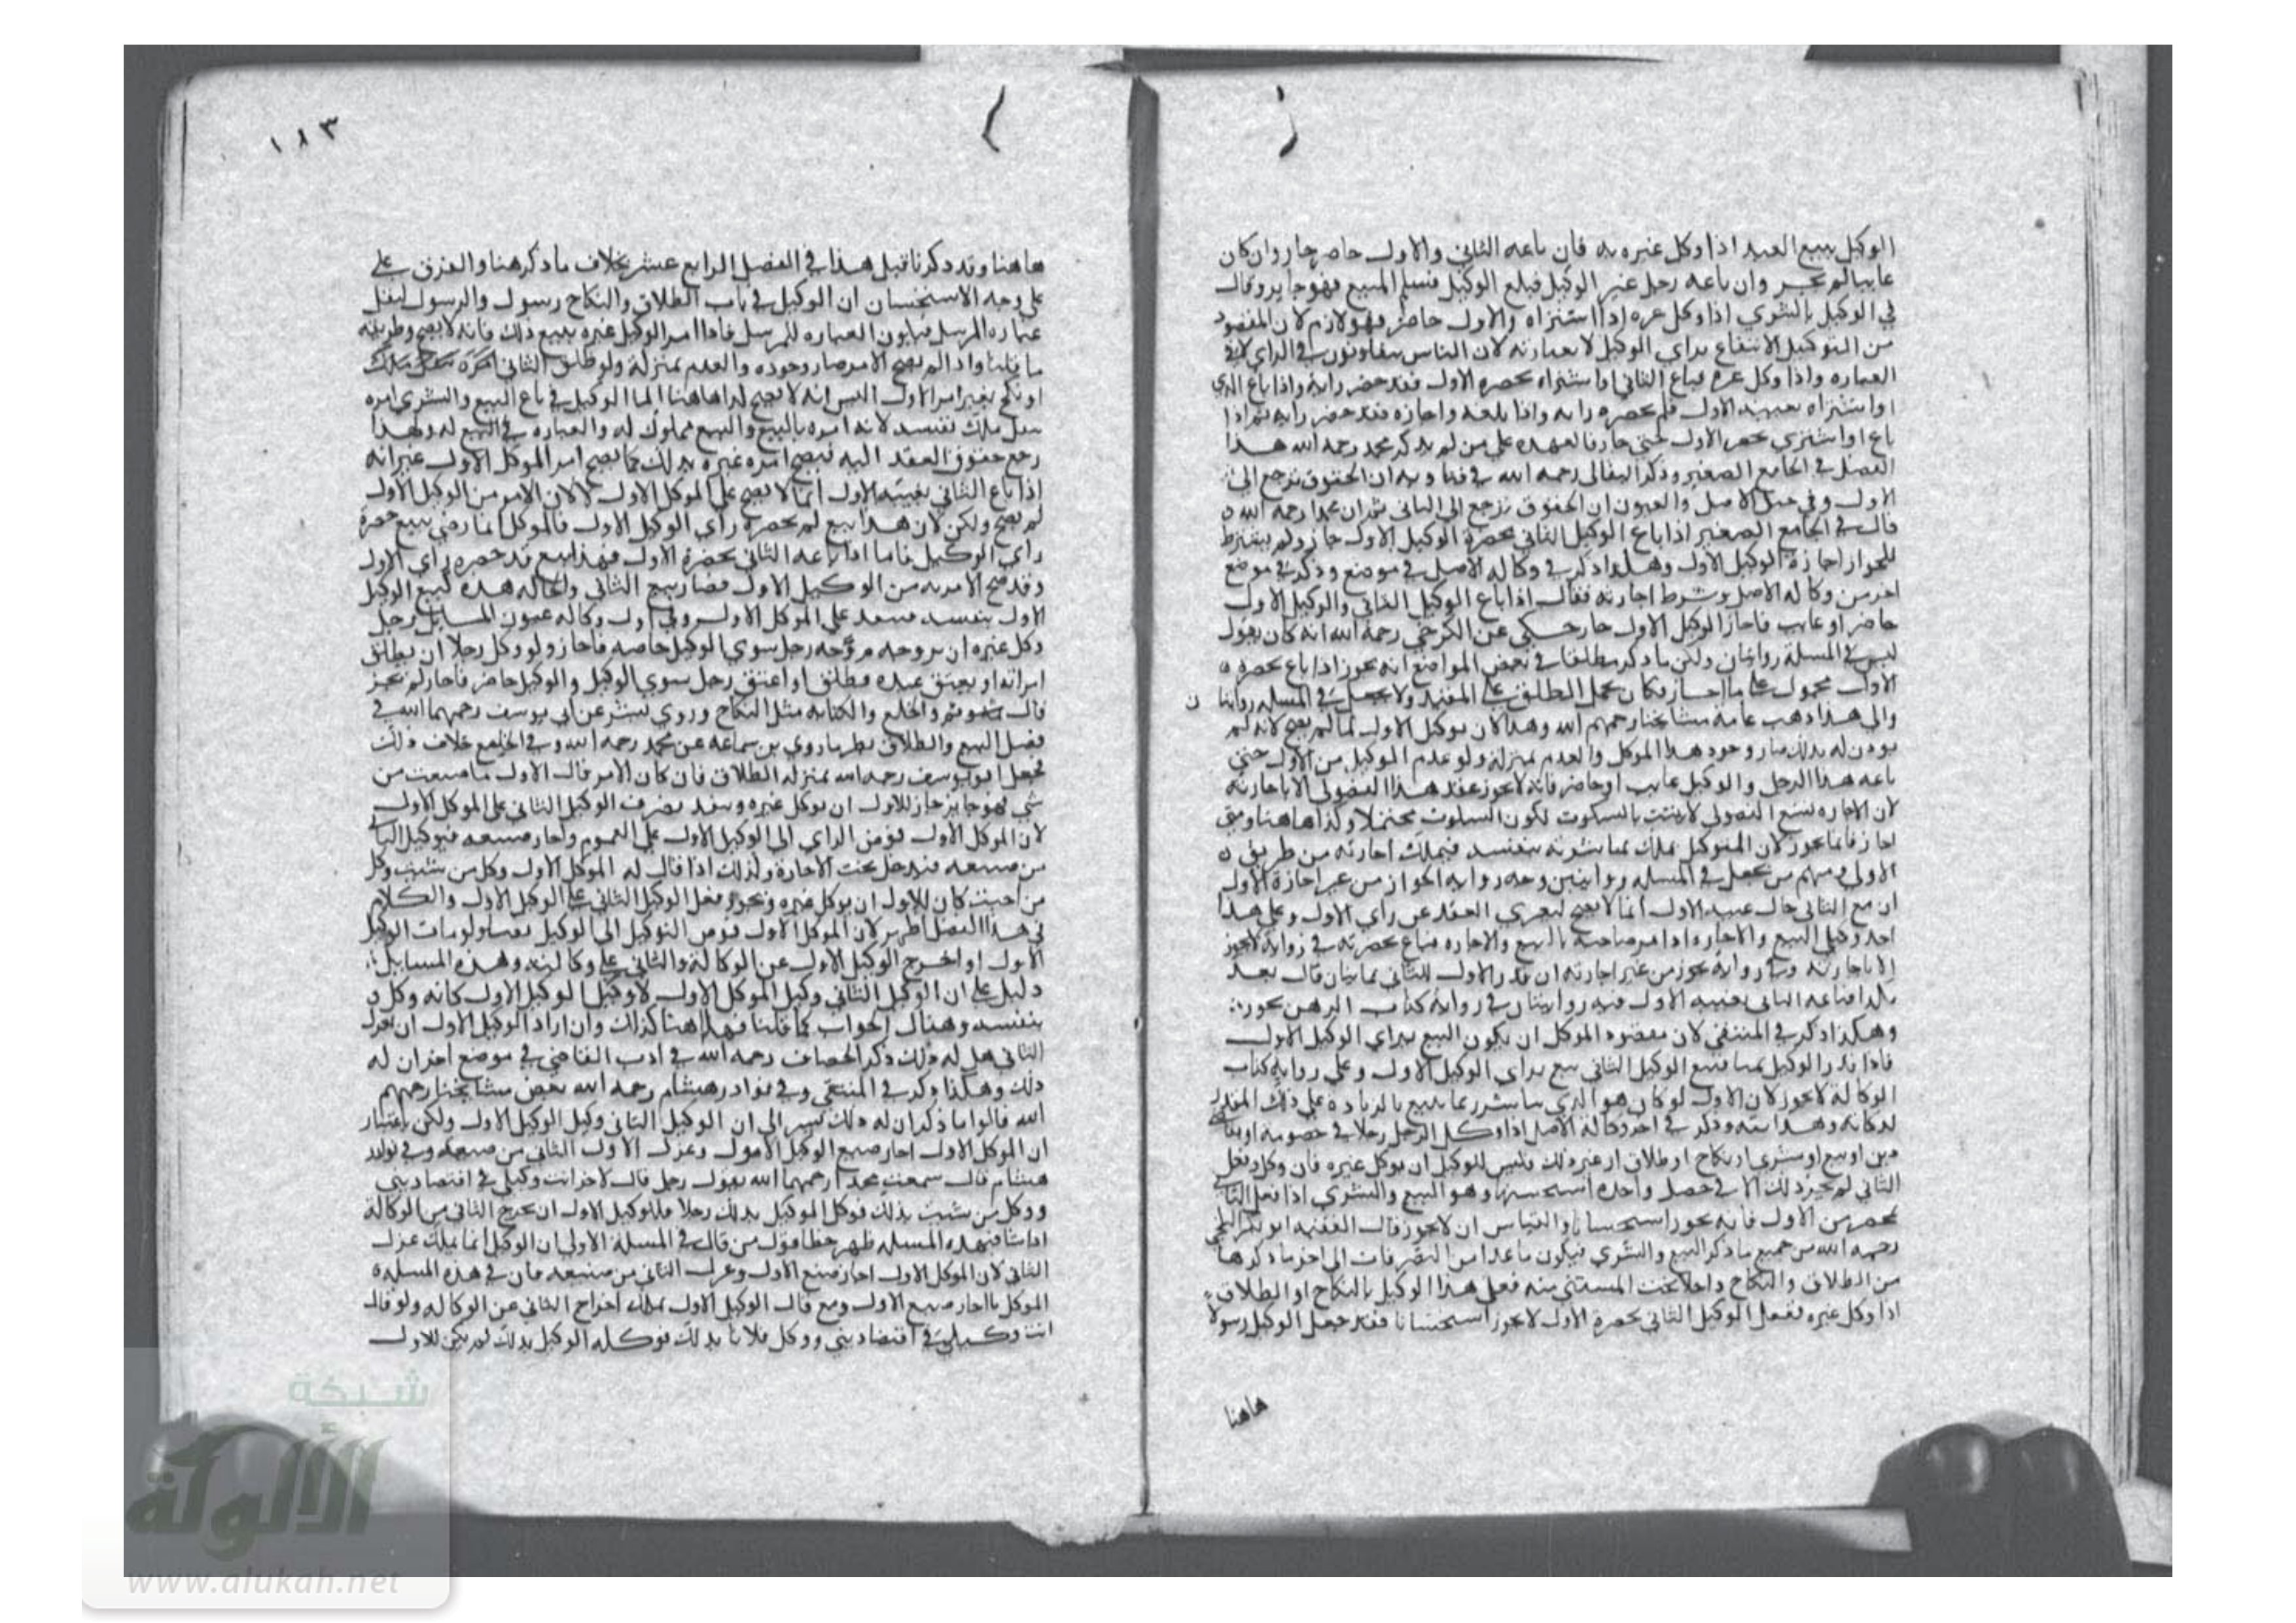 الوكيل ببيع العبد اذا وكل غيره به فان باعه الثاني والاول حاضر جاز وان كان
غايبا لم يجز وان باعه رجل غير الوكيل فبلغ الوكيل فسلم المبيع فهو جايز وقال
في الوكيل بالشري اذا وكل غيره اذا اشتراه والاول حاضر فهو لازم لان المقصود
من التوكيل الانتفاع براي الوكيل لا بعبارته لان الناس يتفاوتون في الراي لا في
العباره واذا وكل غيره فباع الثاني او اشتراه بحضره الاول فقد حضر رايه واذا باع الذي
او اشتراه بغيبه الاول فلم يحضره رايه واذا بلغه واجازه فقد حضر رايه ثم اذا
باع او اشتري بحضره الاول حتي جاز فالعهده علي من لم يذكر محمد رحمه الله هذا
الفصل في الجامع الصغير وذكر البقالي رحمه الله في فتاويه ان الحقوق ترجع الي
الاول وفي حيل الاصل والعيون ان الحقوق ترجع الي الثاني ثم ان محمدا رحمه الله
قال في الجامع الصغير اذا باع الوكيل الثاني بحضرة الوكيل الاول جاز ولم يشترط
للجواز اجازة الوكيل الاول وهكذا ذكر في وكالة الاصل في موضع وذكر في موضع
اخر من وكالة الاصل وشرط اجازته فقال اذا باع الوكيل الثاني والوكيل الاول
حاضر او غايب فاجاز الوكيل الاول جاز حكي عن الكرخي رحمه الله انه كان يقول
ليس في المسلة روايتان ولكن ما ذكر مطلقا في بعض المواضع انه يجوز اذا باع بحضره
الاول محمول علي ما اجاز فكان يحمل المطلق علي المقيد ولا يجعل في المسله روايتا
ن
والي هذا ذهب عامة مشايخنا رحمهم الله وهذا لان توكيل الاول لما لم يصح لانه لم
يوذن له بذلك صار وجود هذا الموكل والعدم بمنزلة ولو عدم التوكيل من الاول حتي
باعه هذا الرجل والوكيل غايب او حاضر فانه لا يجوز عقد هذا الفضولي الا باجازته
لان الاجازه لبيع الفضولي لا يثبت بالسكوت لكون السكوت محتملا وكذا هاهنا ومتي
اجاز فانما يجوز لان المتوكل يملك مباشرته بنفسه فيملك اجازته من طريق
الاولي ومنهم من يجعل في المسله روايتين وجه روايه الجواز من غير اجازة الاول
ان بيع الثاني حال غيبه الاول انما لا يصح لتعري العقد عن راي الاول وعلي هذا
احد وكيلي البيع والاجاره اذا امر صاحبه بالبيع والاجاره فباع بحضرته في رواية لا يجوز
الا باجازته وفي رواية يجوز من غير اجازته ان قدر الاول للثاني ثمنا بان قال بعه
بكذا فباعه الثاني بغيبه الاول فيه روايتان في رواية كتاب الرهن يجوز
وهكذا ذكر في المنتقي لان مقصود الموكل ان يكون البيع براي الوكيل الاول
فاذا قدر الوكيل ثمنا فبيع الوكيل الثاني بيع براي الوكيل الاول وعلي رواية كتاب
الوكالة لا يجوز لان الاول لو كان هو الذي يباشر ربما يبيع بالزيادة علي ذلك المقدر
لذكائه وهدايته وذكر في اخر وكالة الاصل اذا وكل الرجل رجلا في خصومه او تقاضي
دين او بيع او شري او نكاح او طلاق او غير ذلك فليس للوكيل ان يوكل غيره فان وكل وفعل
الثاني لم يجز ذلك الا في خصله واحده استحسنها وهو البيع والشري اذا فعل الثاني
بمحضر من الاول فانه يجوز استحسانا والقياس ان لا يجوز قال الفقيه ابو بكر البلخي
رحمه الله من جميع ما ذكر البيع والشري فيكون ما عداه من التصرفات الي اخر ما ذكرها
من الطلاق والنكاح داخلا تحت المستثني منه فعلي هذا الوكيل بالنكاح او الطلاق
اذا وكل غيره ففعل الوكيل الثاني بحضرة الاول لا يجوز استحسانا فقد جعل الوكيل رسولا
هاهنا
١٨٣
هاهنا وقد ذكرنا قبل هذا في الفصل الرابع عشر بخلاف ما ذكر هنا والفرق علي
علي وجه الاستحسان ان الوكيل في باب الطلاق والنكاح رسول والرسول ينقل
عبارة المرسل فيكون العباره للمرسل فاذا امر الوكيل غيره ببيع ذلك فانه لا يصح وطريقه
ما قلنا واذا لم يصح الامر صار وجوده والعدم بمنزلة ولو طلق الثاني
او نكح بغير امر الاول اليس انه لا يصح كذا هاهنا اما الوكيل في باع البيع والشري امره
مثل ملك نفسه لانه امره بالبيع والبيع مملوك له والعباره في البيع له ولهذا
رجع حقوق العقد اليه فيصح امره غيره بذلك كما يصح امر الموكل الاول غير انه
اذا باع الثاني بغيبه الاول انما لا يصح علي الموكل الاول لا لان الامر من الوكيل الاول
لم يصح ولكن لان هذا بيع لم يحضره راي الوكيل الاول فالموكل انما رضي ببيع حضره
راي الوكيل فاما اذا باعه الثاني بحضرة الاول فهذا بيع قد حضره راي الاول
وقد صح الامر به من الوكيل الاول فصار بيع الثاني والحاله هذه كبيع الوكيل
الاول بنفسه فينفذ علي الموكل الاول وفي اول وكاله عيون المسايل رجل
وكل غيره ان يزوجه فزوجه رجل سوي الوكيل خاصه فاجاز ولو وكل رجلا ان يطلق
امراته او يعتق عبده فطلق او اعتق رجل سوي الوكيل والوكيل حاضر فاجاز لم يجز
قال والخلع والكتابه مثل النكاح وروي بشر عن ابي يوسف رحمهما الله في
فصل البيع والطلاق نظير ما روي بن سماعة عن محمد رحمه الله وفي الخلع خلاف ذلك
فجعل ابو يوسف رحمه الله بمنزله الطلاق فان كان الامر قال الاول ما صنعت من
شي فهو جايز جاز للاول ان يوكل غيره وينفذ تصرف الوكيل الثاني علي الموكل الاول
لان الموكل الاول فوض الراي الي الوكيل الاول علي العموم واجاز صنيعه فتوكيل الثاني
من صنيعه فيدخل تحت الاجازة وكذلك اذا قال له الموكل الاول وكل من شيت وكل
من احببت كان للاول ان يوكل غيره ويجوز فعل الوكيل الثاني علي الوكيل الاول والكلام
في هذا الفصل اظهر لان الموكل الاول فوض التوكيل الي الوكيل نصا ولو مات الوكيل
الاول او اخرج الوكيل الاول عن الوكالة فالثاني علي وكالته وهذه المسايل
دليل علي ان الوكيل الثاني وكيل الموكل الاول لا وكيل الوكيل الاول كانه وكل
بنفسه وهناك الجواب كما قلنا فهاهنا كذلك وان اراد الوكيل الاول ان يعزل
الثاني هل له ذلك ذكر الخصاف رحمه الله في ادب القاضي في موضع اخر ان له
ذلك وهكذا ذكر في المنتقي وفي نوادر هشام رحمه الله بعض مشايخنا رحمهم
الله قالوا ما ذكر ان له ذلك يشير الي ان الوكيل الثاني وكيل الوكيل الاول ولكن باعتبار
ان الموكل الاول اجاز صنيع الوكيل الاول وعزل الاول الثاني من صنيعه وفي نوادر
هشام قال سمعت محمدا رحمهما الله يقول رجل قال لاخر انت وكيلي في اقتضا ديني
ووكل من شيت بذلك فوكل الوكيل بذلك رجلا فللوكيل الاول ان يخرج الثاني من الوكالة
اذا شا فبهذه المسله ظهر خطا قول من قال في المسلة الاولي ان الوكيل انما يملك عزل
الثاني لان الموكل الاول اجاز صنع الاول وعزل الثاني من صنيعه فان في هذه المسلة
الموكل ما اجاز صنيع الاول ومع قال الوكيل الاول يملك اخراج الثاني عن الوكاله ولو قال
انت وكيلي في اقتضا ديني ووكل فلانا بذلك فوكله الوكيل بذلك لم يكن للاول
شبكة
الألوكة
www.alukah.net